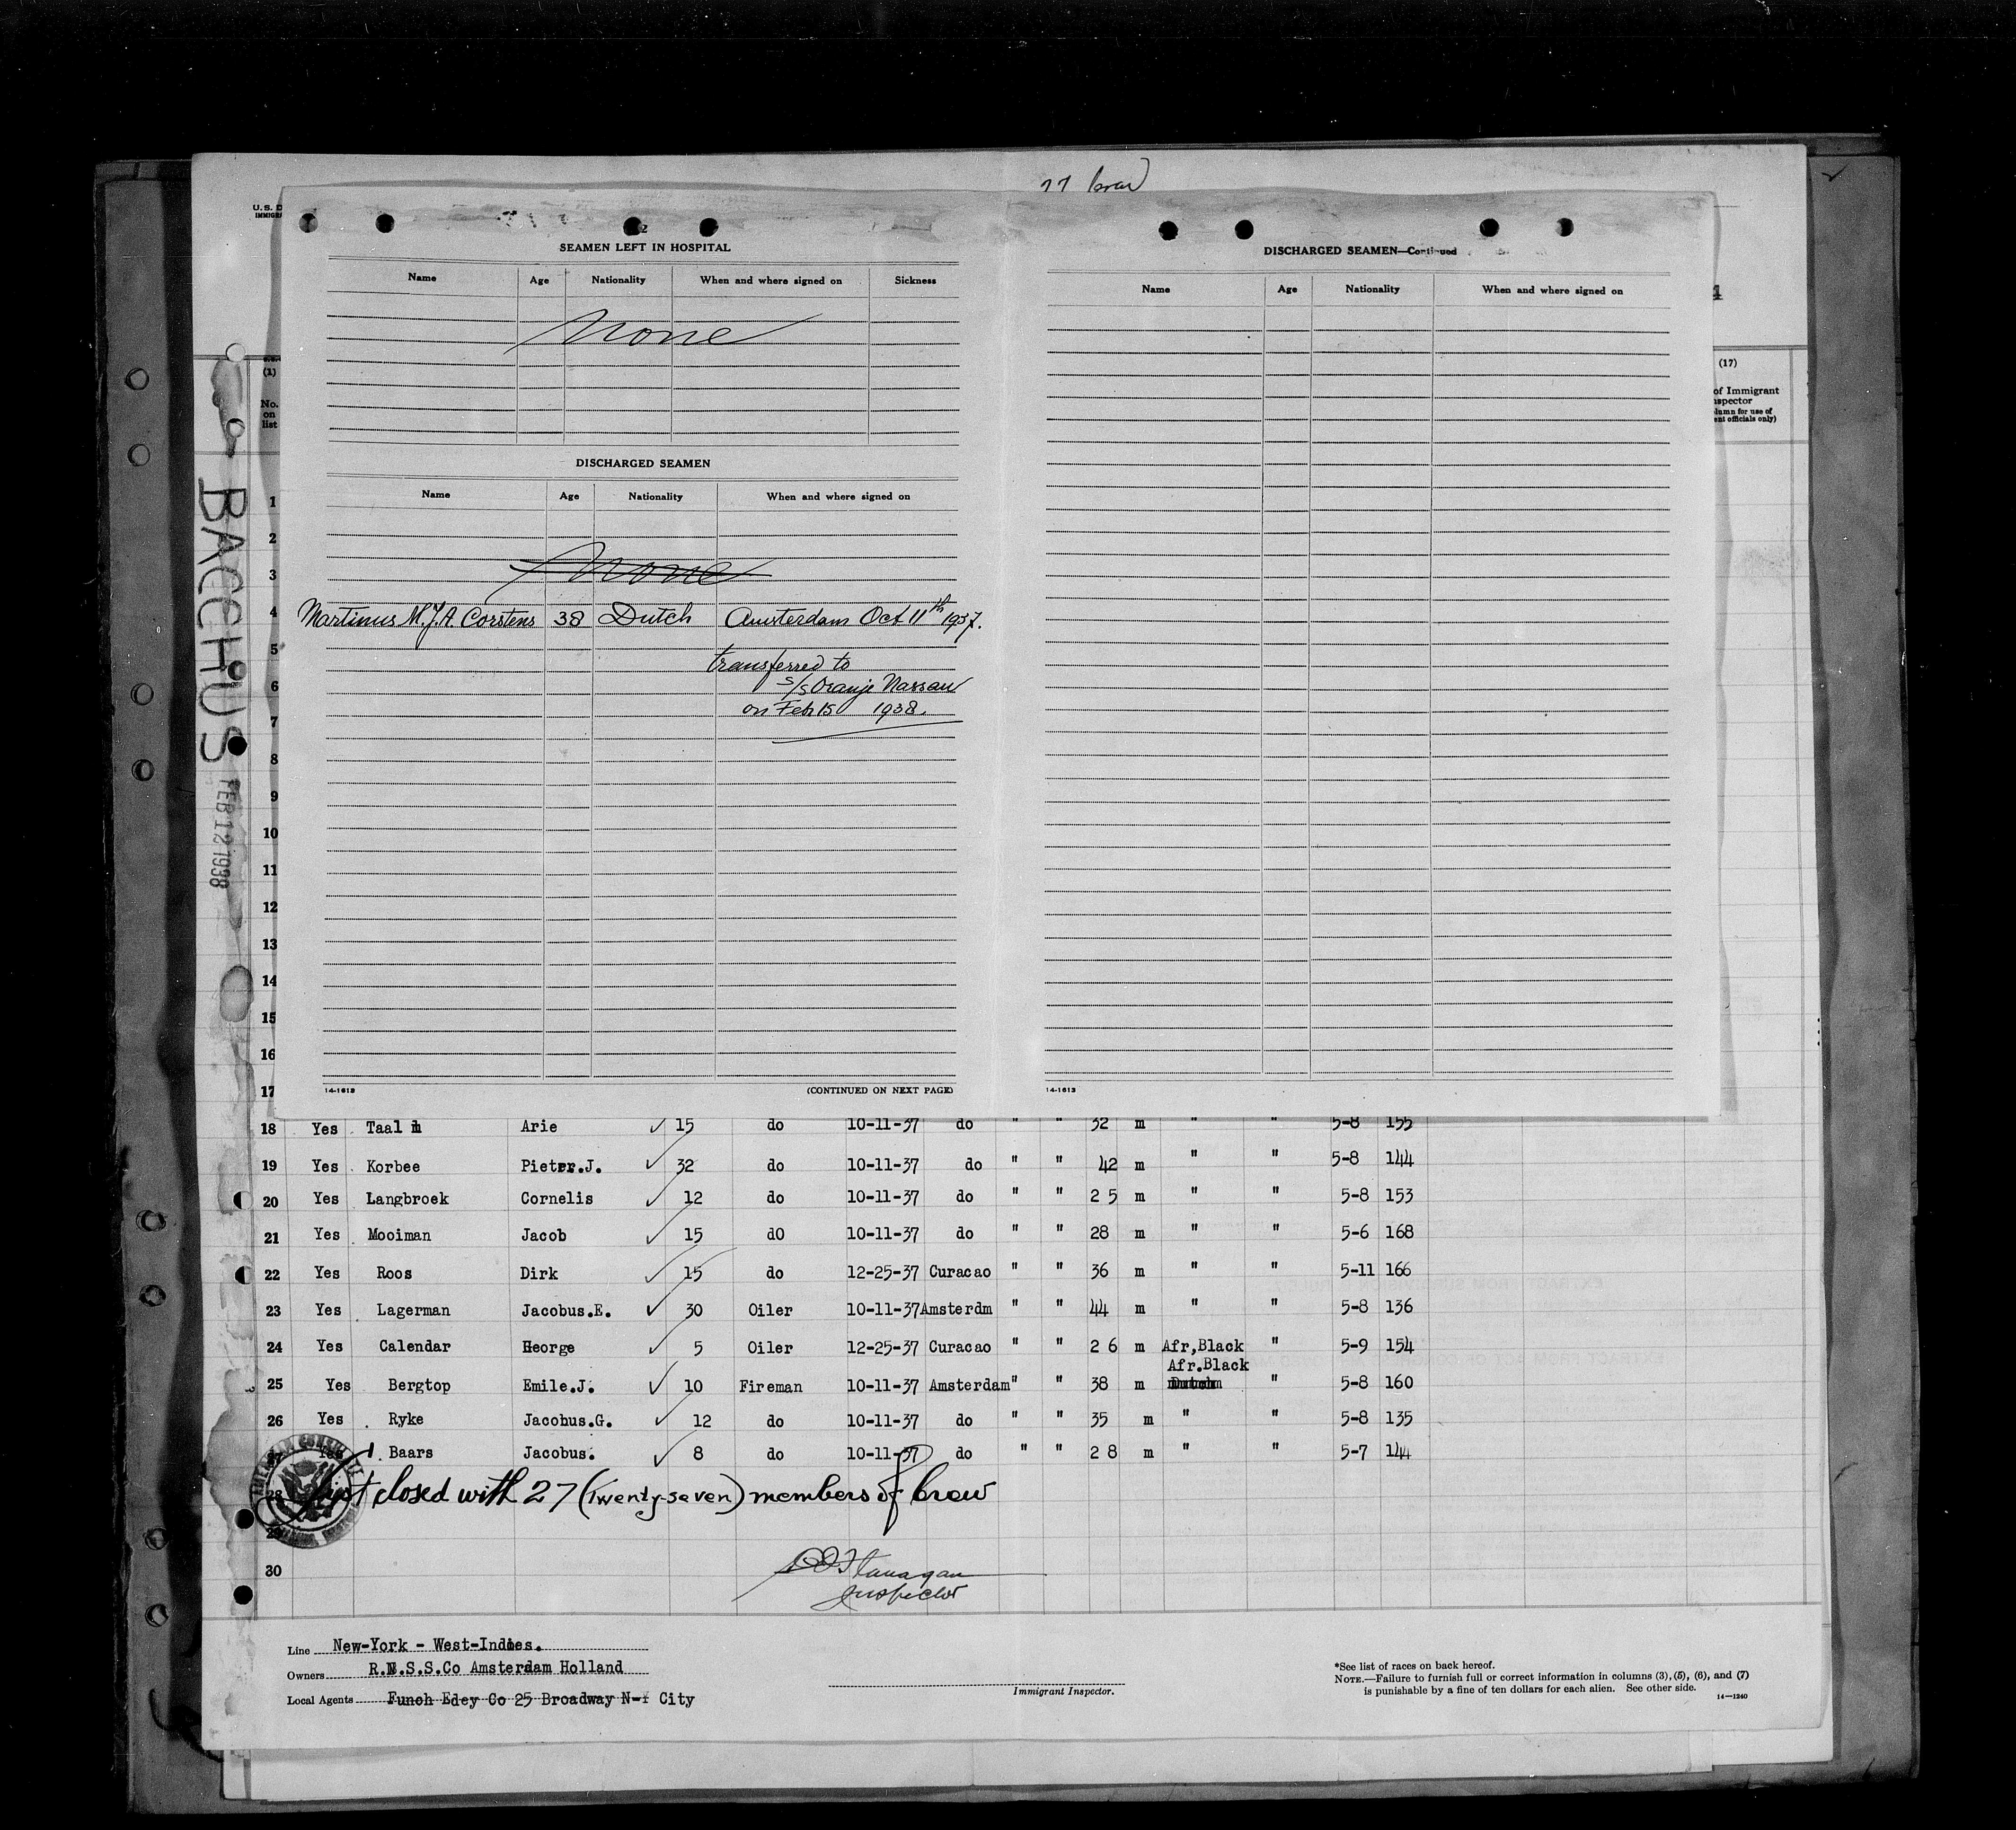 27 Crew
U. S. D
IMMIGRA
2
SEAMEN LEFT IN HOSPITAL
Name Age Nationality When and where signed on Sickness
None
DISCHARGED SEAMEN
Name Age Nationality When and where signed on
None
Martinus M.J.A. Corstens 38 Dutch Amsterdam Oct. 11th 1937.
transferred to
s/s Oranje Nassau
on Feb 15 1938.
14-1613 (CONTINUED ON NEXT PAGE)
DISCHARGED SEAMEN—Continued
Name Age Nationality When and where signed on
14-1613
4
(17)
of Immigrant
nspector
olumn for use of
ent officials only)
(1)
No.
on
list
BACCHUS
FEB 12 1938
1
2
3
4
5
6
7
8
9
10
11
12
13
14
15
16
17
18 Yes Taal Arie 15 do 10-11-37 do " " 32 m " " 5-8 155
19 Yes Korbee Pieter.J. 32 do 10-11-37 do " " 42 m " " 5-8 144
20 Yes Langbroek Cornelis 12 do 10-11-37 do " " 2 5 m " " 5-8 153
21 Yes Mooiman Jacob 15 dO 10-11-37 do " " 28 m " " 5-6 168
22 Yes Roos Dirk 15 do 12-25-37 Curacao " " 36 m " " 5-11 166
23 Yes Lagerman Jacobus.E. 30 Oiler 10-11-37 Amsterdm " " 44 m " " 5-8 136
24 Yes Calendar George 5 Oiler 12-25-37 Curacao " " 2 6 m Afr,Black " 5-9 154
Afr.Black
25 Yes Bergtop Emile.J. 10 Fireman 10-11-37 Amsterdam " " 38 m Dutch " 5-8 160
26 Yes Ryke Jacobus.G. 12 do 10-11-37 do " " 35 m " " 5-8 135
27 Yes Baars Jacobus. 8 do 10-11-37 do " " 2 8 m " " 5-7 144
28 List closed with 27 (Twenty-seven) members of Crew
29
30
Flanagan
Inspector
Line New-York - West-Indies.
Owners R.N.S.S.Co Amsterdam Holland
Local Agents Funch Edey Co 25 Broadway N-Y City
Immigrant Inspector.
*See list of races on back hereof.
NOTE.—Failure to furnish full or correct information in columns (3), (5), (6), and (7)
is punishable by a fine of ten dollars for each alien. See other side.
14—1240